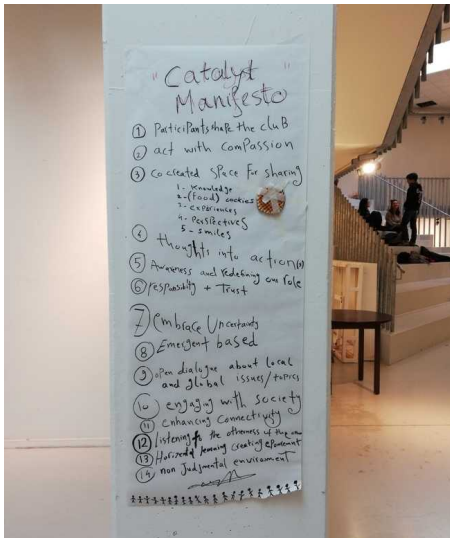 "Catalyst"
Manifesto
1 Participants shape the cluB
2 act with compassion
3 co created space for sharing
1- knowledge
2-(food) cookies
3- experiences
4- perspectives
5- smiles
4 thoughts into action(s)
5 Awareness and redefining our role
6 responsibility + Trust
7 embrace Uncertainty
8 Emergent based
9 open dialogue about local
and global issues/topics
10 engaging with society
11 enhancing Connectivity
12 Listening to the otherness of the
13 learning creating
14 non judgmental enviroment